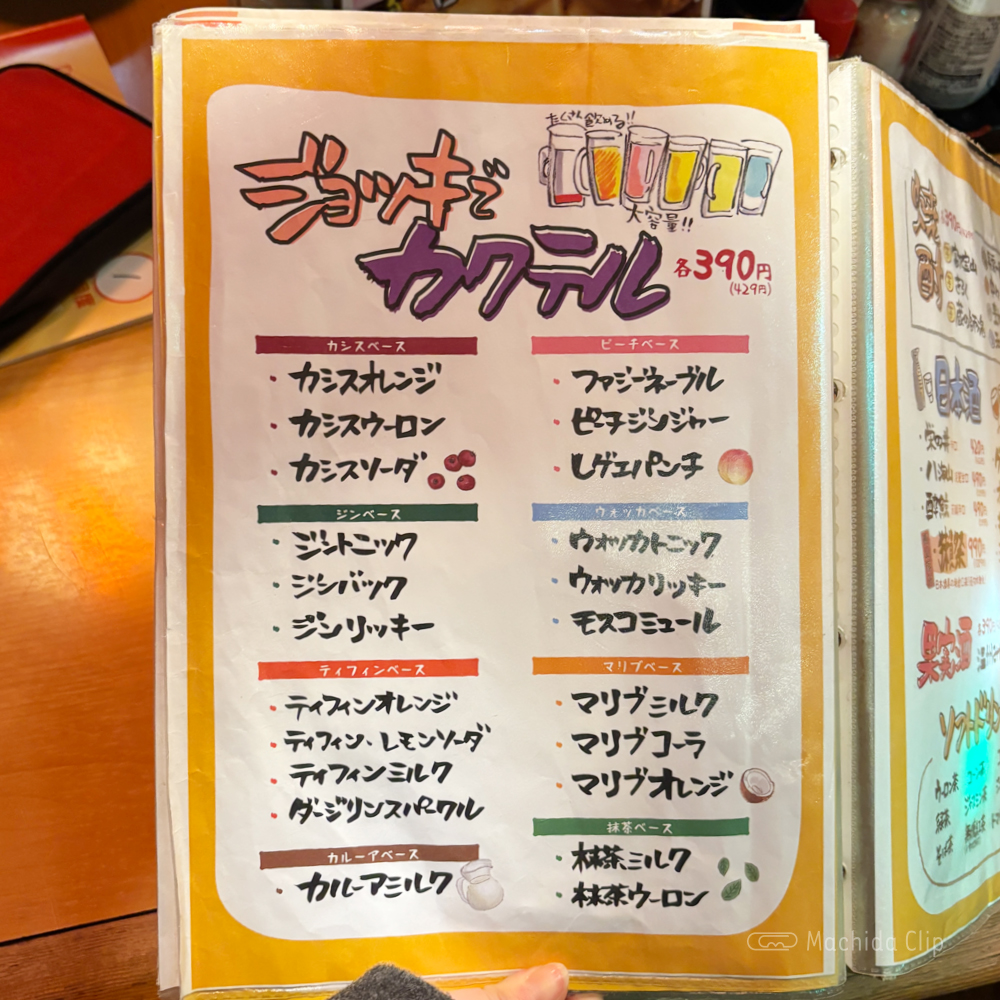 たくさん飲める!!
ジョッキで
大容量!!
カクテル
各390円
(429円)
カシスベース
・カシスオレンジ
・カシスウーロン
・カシスソーダ
ジンベース
・ジントニック
・ジンバック
・ジンリッキー
ティフィンベース
・ティフィンオレンジ
・ティフィン、レモンソーダ
・ティフィンミルク
・ダージリンスパークル
カルーアベース
・カルーアミルク
ピーチベース
・ファジーネーブル
・ピーチジンジャー
・レゲエパンチ
ウォッカベース
・ウォッカトニック
・ウォッカリッキー
・モスコミュール
マリブベース
・マリブミルク
・マリブコーラ
・マリブオレンジ
抹茶ベース
・抹茶ミルク
・抹茶ウーロン
焼酎
日本酒
・八海山
490円
・獺祭
990円
果実酒
ソフトドリ
ウーロン茶
コーン茶
緑茶
ジャスミン茶
そば茶
Machida Clip